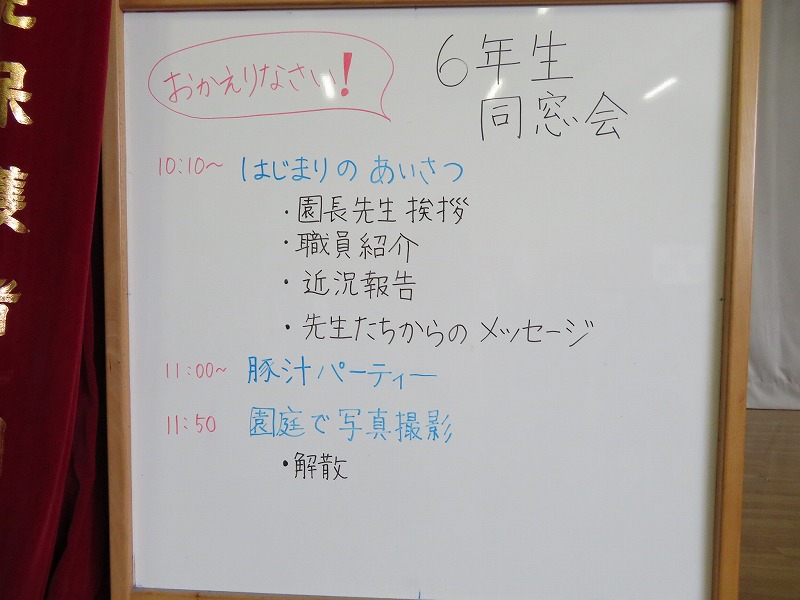 おかえりなさい!
6年生
同窓会
10:10~ はじまりの あいさつ
・園長先生 挨拶
・職員紹介
・近況報告
・先生たちからの メッセージ
11:00~ 豚汁パーティー
11:50 園庭で写真撮影
・解散
保護者